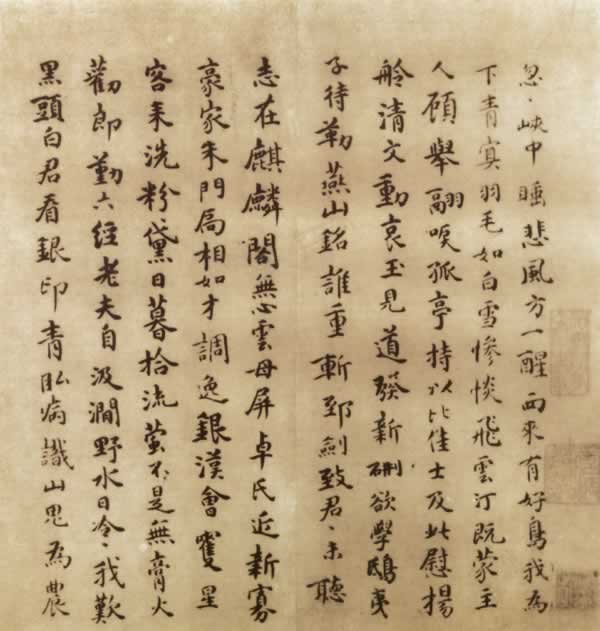 忽〻峽中睡悲風方一醒西來有好鳥我為
下青冥羽毛如白雪慘惔飛雲汀既蒙主
人顧舉翮唳孤亭持以比佳士及此慰揚
舲清文動哀玉見道發新硎欲學鴟夷
子待勒燕山銘誰重斬郅劍致君〻未聽
志在麒麟閣無心雲母屏卓氏近新寡
豪家朱門扃相如才調逸銀漢會雙星
客來洗粉黛日暮拾流螢不是無膏火
勸郎勤六經老夫自汲澗野水日泠〻我歎
黑頭白君看銀印青臥病識山鬼為農